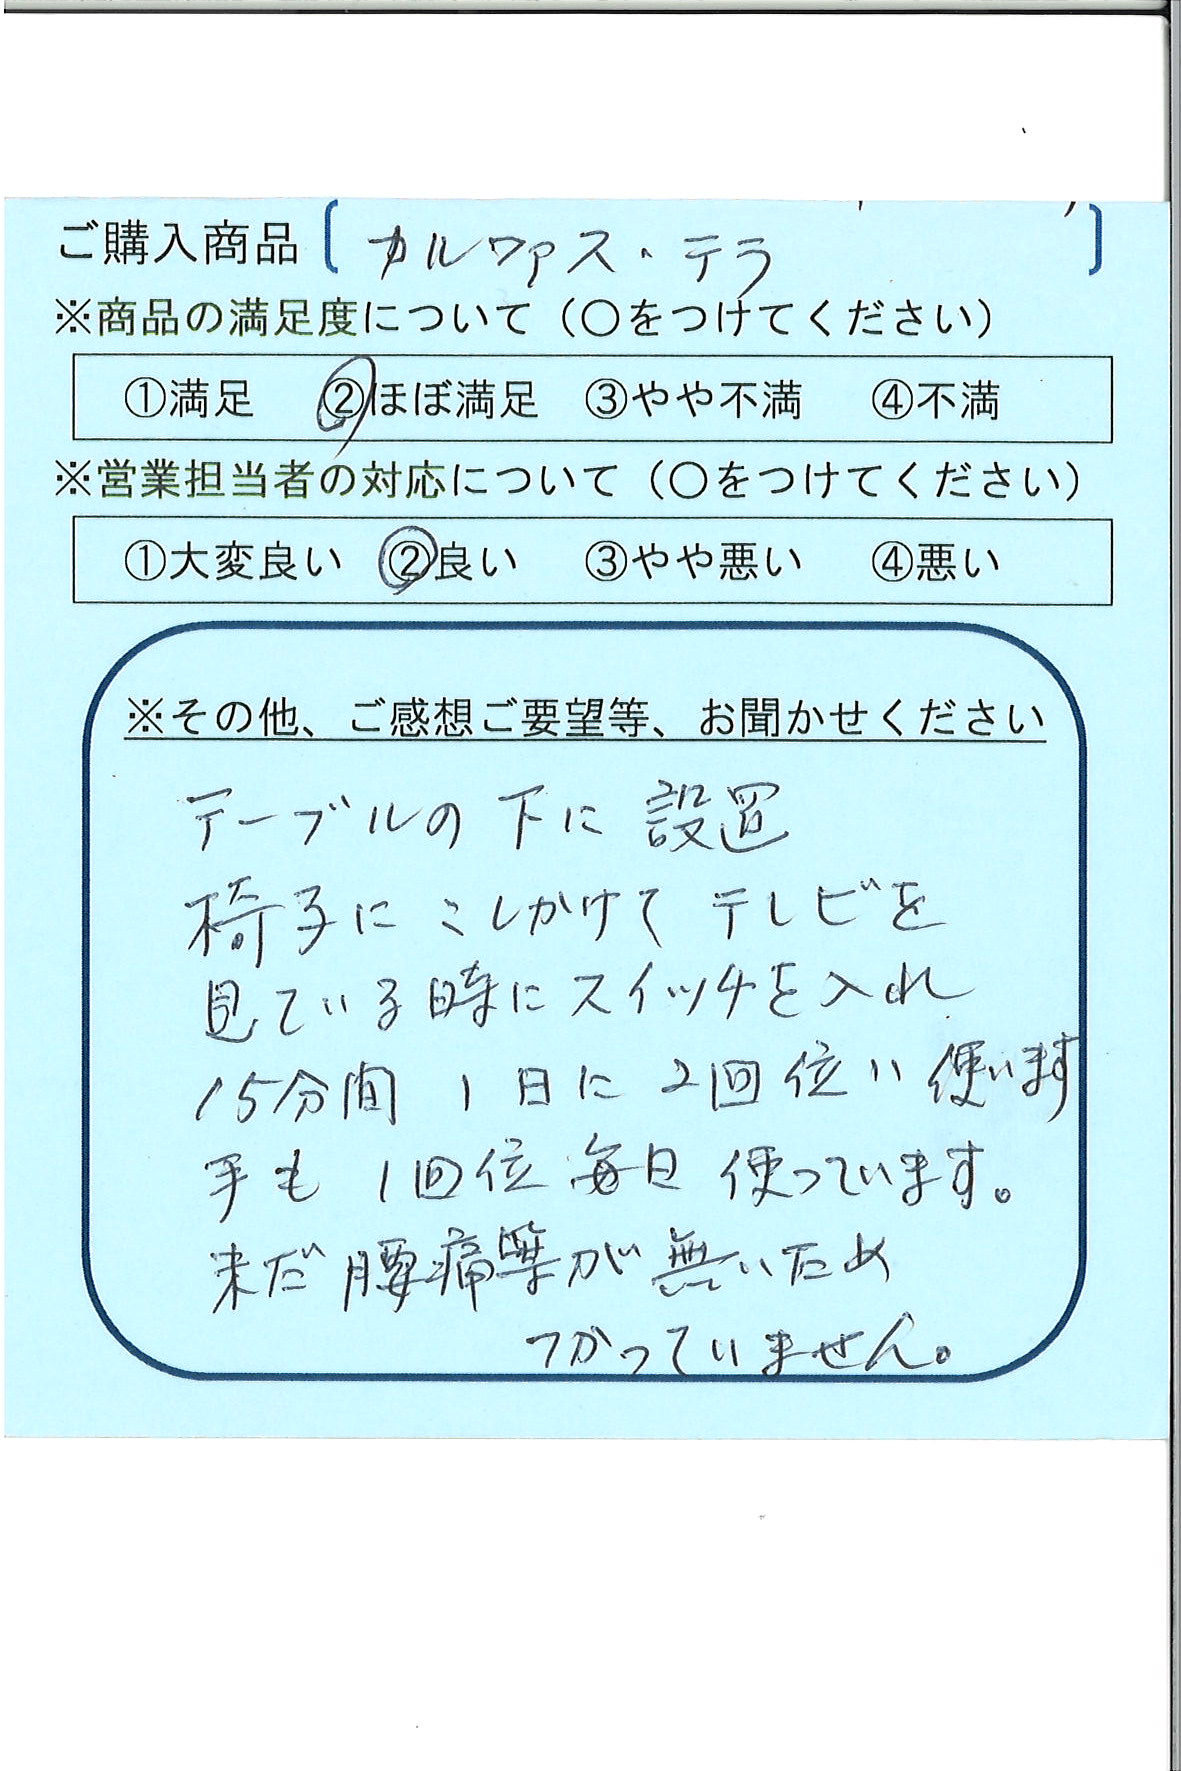 ご購入商品 [ カルワァス・テラ ]
※商品の満足度について（○をつけてください）
①満足 ②ほぼ満足 ③やや不満 ④不満
※営業担当者の対応について（○をつけてください）
①大変良い ②良い ③やや悪い ④悪い
※その他、ご感想ご要望等、お聞かせください
テーブルの下に設置
椅子にこしかけてテレビを
見ている時にスイッチを入れ
15分間 1日に2回位い使います
手も1回位毎日使っています。
未だ腰痛等が無いため
つかっていません。